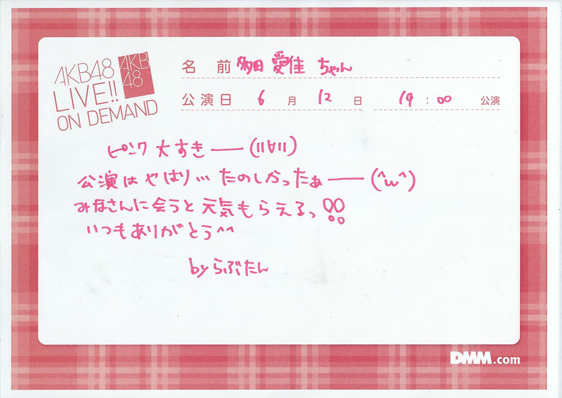 AKB48
LIVE!!
ON DEMAND
AKB
48
名 前 多田 愛佳 ちゃん
公演日 6 月 12 日 19 : 00 公演
ピンク 大すき ー (॥∀॥)
公演は やはり… たのしかったぁー (^ω^)
みなさんに会うと 元気もらえるっ!!
いつもありがとう^^
by らぶたん
DMM.com